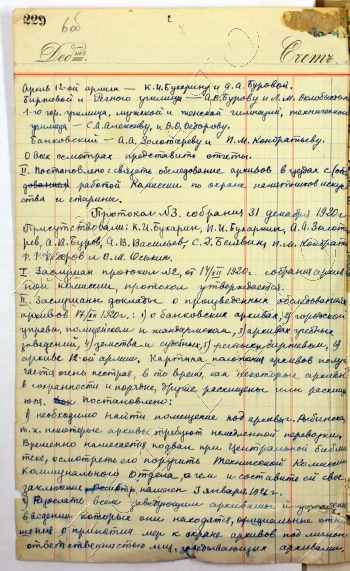 229
2
Дебетъ.
Счетъ.
Архив 12-ой армии — К.И. Бухарину и А.А. Буровой.
Биржевой и Речного училища — А.В. Бурову и Л.М.
1-го гор. училища, мужской и женской гимназий, технического
училища — С.А. Алексееву, и В.Ф. Федорову.
Банковский — А.А. Золотареву и П.М. Кондратьеву.
О всех осмотрах представить отчеты.
II. Постановлено: связать обследование архивов в уездах с
работой Комиссии по охране памятников искус
ства и старине.
Протокол №3, собрания 31 декабря 1920 г.
Присутствовали: К.И. Бухарин, П.И. Бухармин, А.А. Золота
рев, А.В. Буров, А.В. Васильев, С.Д. П.М. Кондрать
ев, Федоров и В.М. Оськин.
I. Заслушан протокол №2, от 17/XII 1920 г. собрания архив
ной комиссии, протокол утверждается.
II. Заслушаны доклады о произведенных обследованиях
архивов 17/XII 1920 г.: 1) о банковских архивах, 2) городской
управы, полицейском и жандармском, 3) архивах учебных
заведений, 4) судебных, 5) биржевом, 6)
архиве 12-ой армии. Картина архивов полу-
чается очень пестрая, в то время, как некоторые архивы
в сохранности и порядке, другие расхищены или расхища
ются. Постановлено:
1) необходимо найти помещение под архивы г. Рыбинска
т.к. некоторые архивы требуют немедленной перевозки.
Временно намечается подвал при Центральной библио
теке, осмотреть его поручить Технической Комиссии
Коммунального Отдела, о чем и составить ей свое
заключение 3 января 1921 г.
2) Разослать всем заведующим архивами и учреждениям
в ведении которых они находятся, официальные отно
шения о принятии мер к охране архивов под личной
ответственностью лиц, заведывающих архивами.